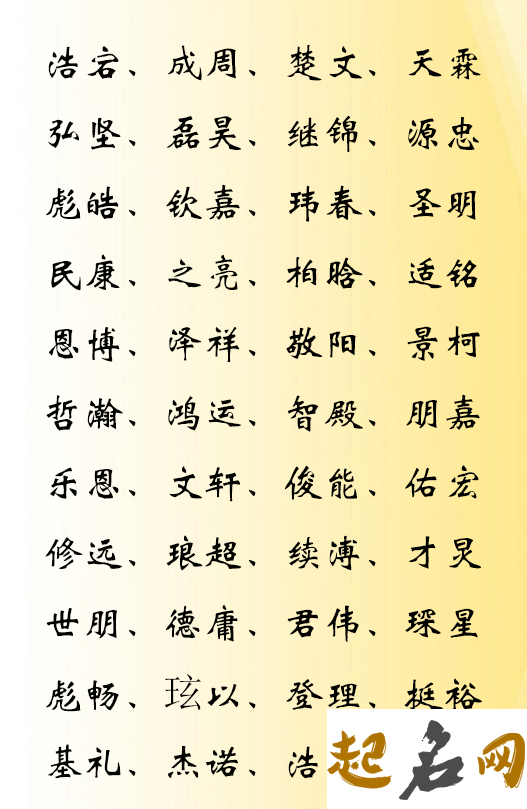 浩宕、成周、楚文、天霖
弘坚、磊昊、继锦、源忠
彪皓、钦嘉、玮春、圣明
民康、之亮、柏晗、适铭
恩博、泽祥、敬阳、景柯
哲瀚、鸿运、智殿、朋嘉
乐恩、文轩、俊能、佑宏
修远、琅超、续溥、才炅
世朋、德庸、君伟、琛星
彪畅、玹以、登理、挺裕
基礼、杰诺、浩
起名网